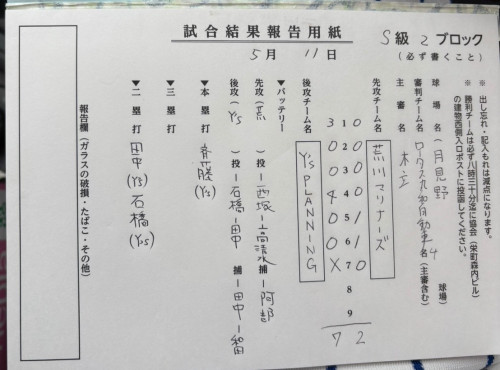 試合結果報告用紙
5月 11日
S級 2ブロック
(必ず書くこと)
※出し忘れ・記入もれは減点になります。
※勝利チームは必ず八時三十分迄に協会(栄町森内ビル)
の建物西側入口ポストに投函してください。
球場名(月見野 4 球場)
審判チーム名(主審含む)
主審名 木立
先攻チーム名 荒川マリナーズ
1 2 3 4 5 6 7 8 9
0 0 0 0 1 1 0 2
後攻チーム名 Y's PLANNING
3 0 0 4 0 0 X 7
▼バッテリー
先攻(荒)投ー西塚ー高清水 捕ー阿部
後攻(Y's)投ー石橋ー田中 捕ー田中ー和田
▼本塁打 斉藤(Y's)
▼三塁打
▼二塁打 田中(Y's) 石橋(Y's)
報告欄(ガラスの破損・たばこ・その他)